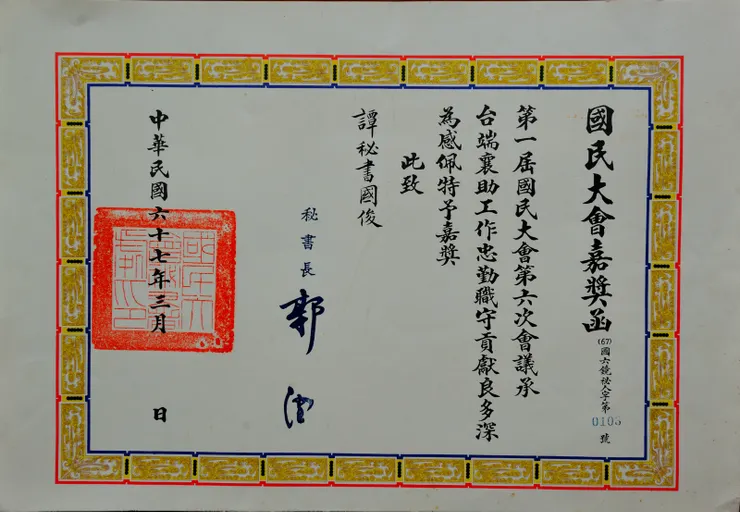 國民大會嘉獎函
(67)國六鏡祕人字第0105號
第一屆國民大會第六次會議承
台端襄助工作忠勤職守貢獻良多深
為感佩特予嘉獎
此致
譚秘書國俊
秘書長 郭澄
中華民國六十七年三月 日